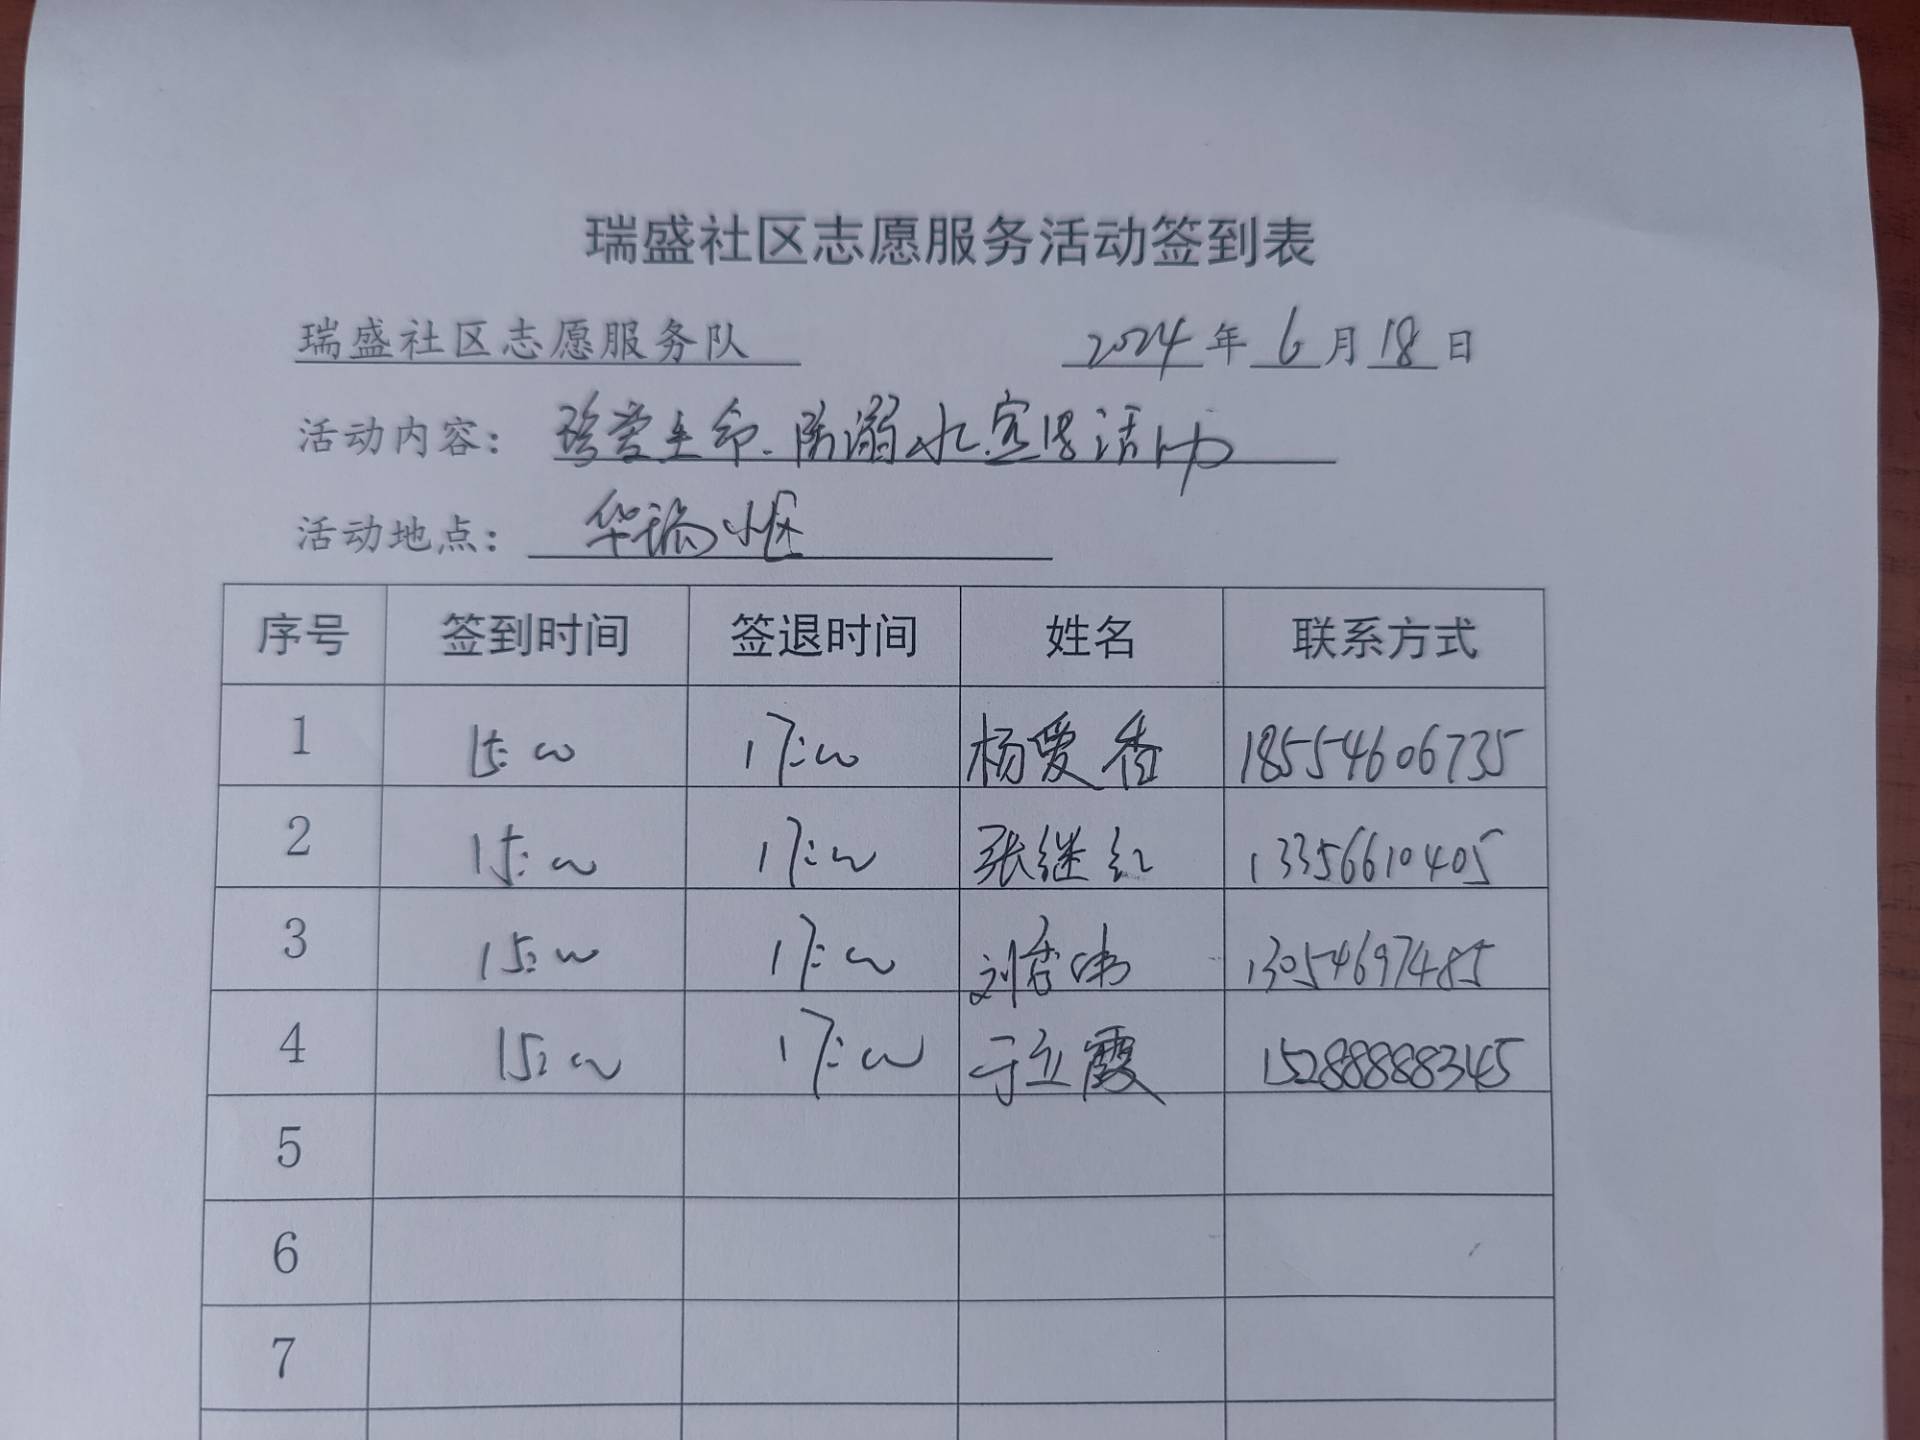 瑞盛社区志愿服务活动签到表
瑞盛社区志愿服务队 2024年6月18日
活动内容：珍爱生命.防溺水宣传活动
活动地点：华瑞小区
序号 签到时间 签退时间 姓名 联系方式
1 15:00 17:00 杨爱香 18554606735
2 15:00 17:00 张继红 13356610405
3 15:00 17:00 刘 13054697485
4 15:00 17:00 于立霞 15288888345
5
6
7